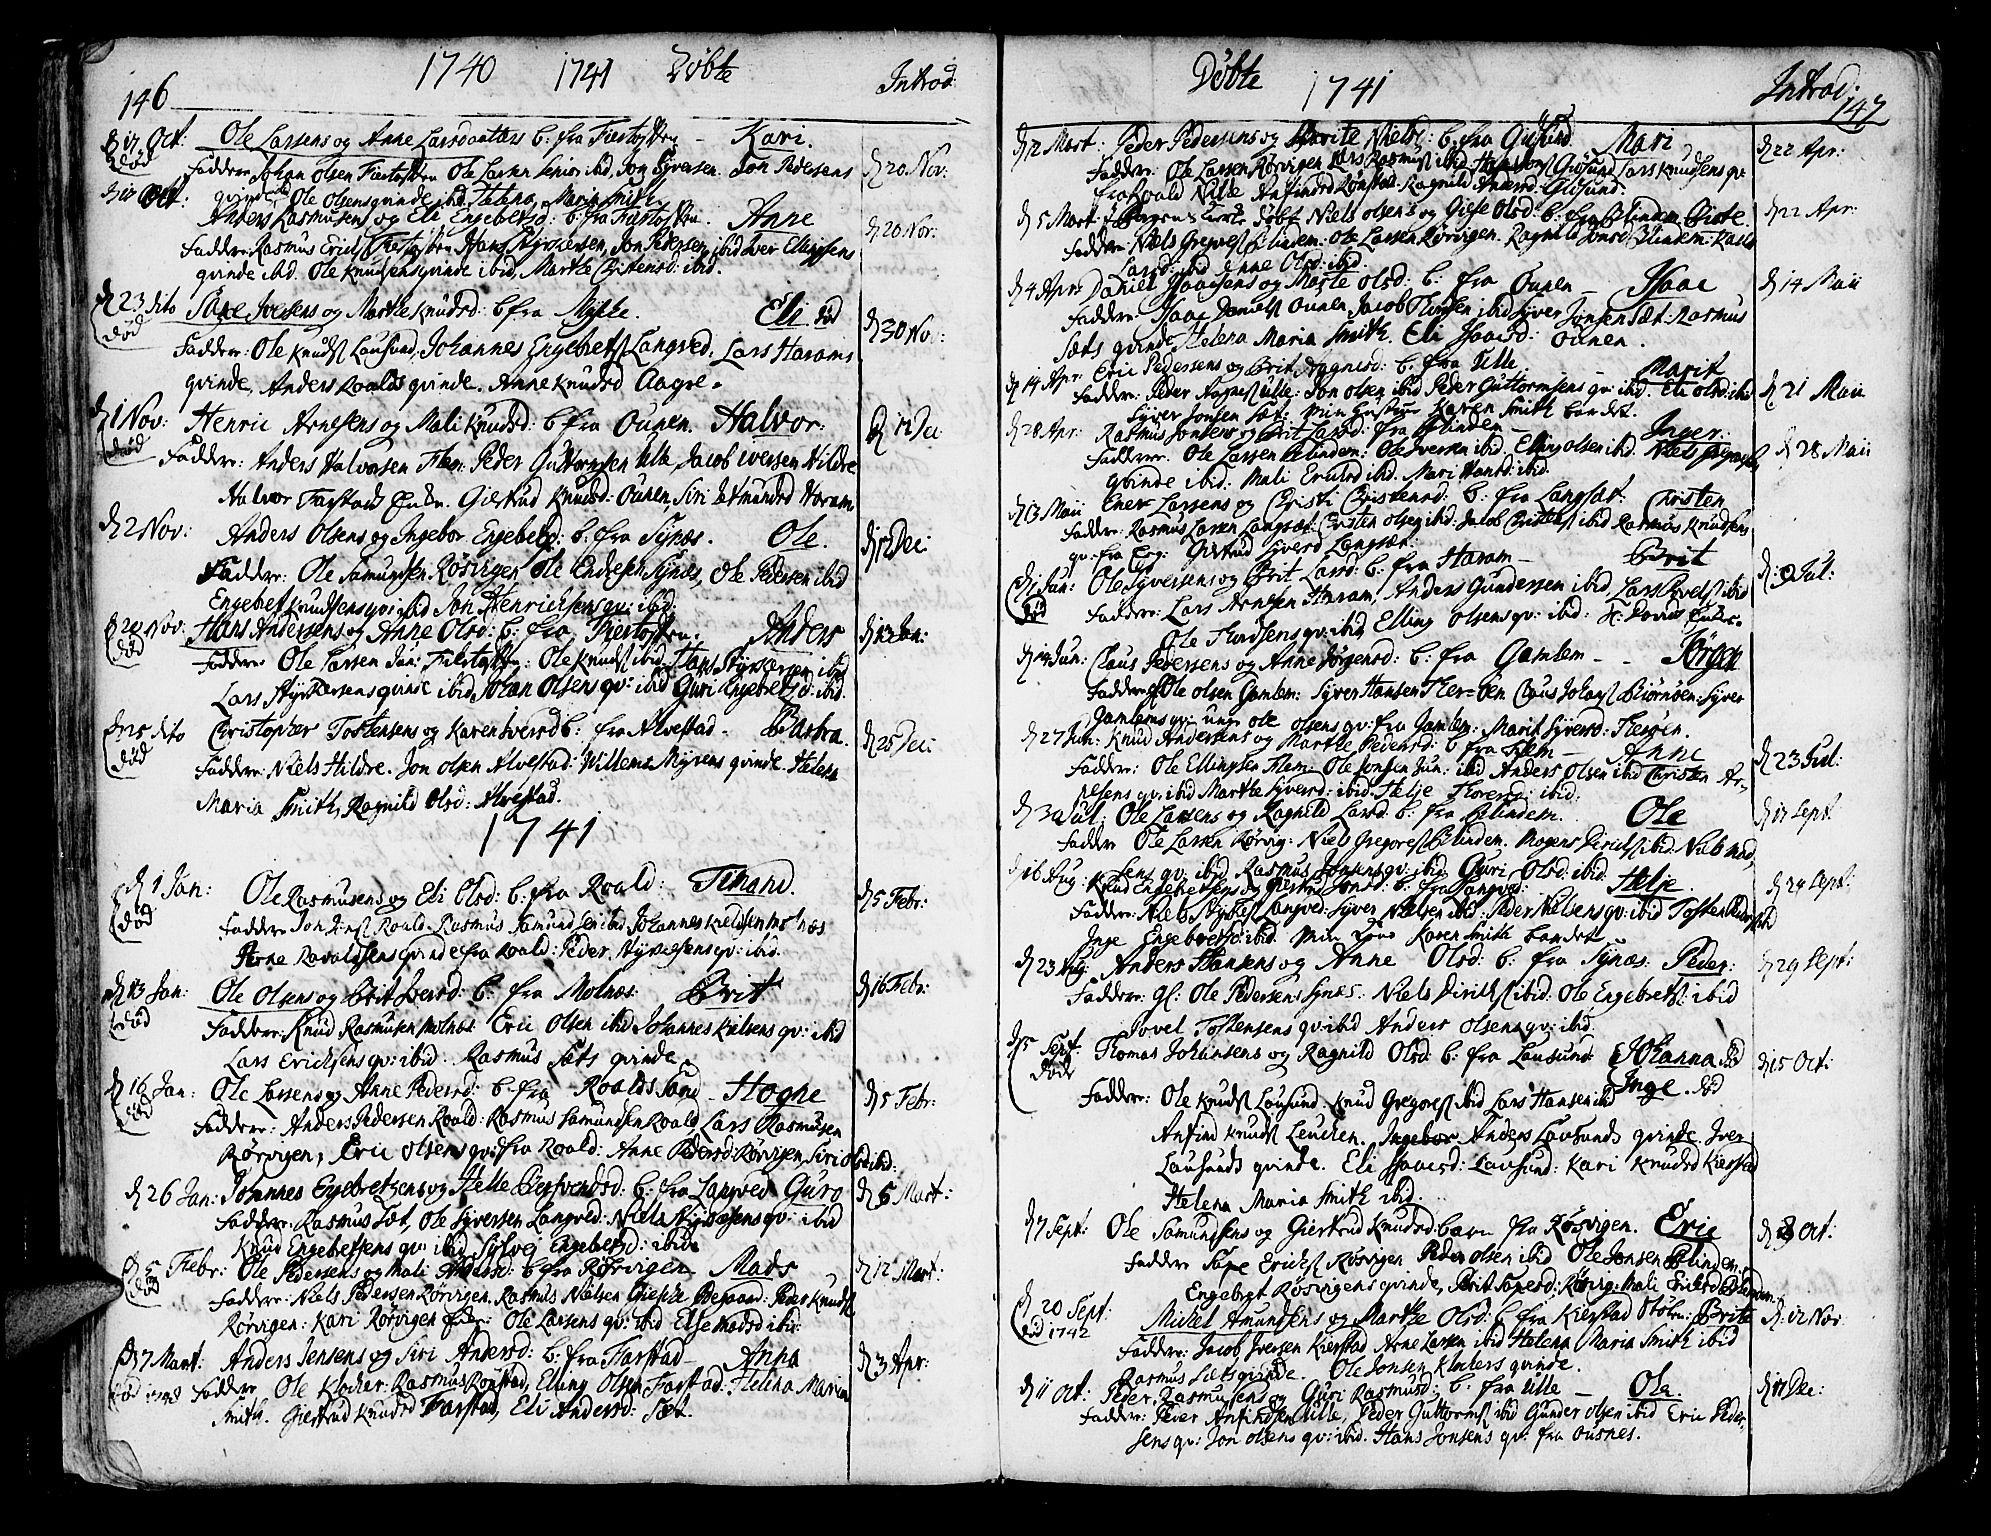 146
1740 1741 Døbte
Introd
d 17 Oct: Ole Larsens og Anne Larsdaatters b: fra Fiertoften - Kari.
død
Faddere: Johan Olsen Fiertoften Ole Larsen Senior ibid, Jon Syversen. Jon Pedersens
d 20 Nov:
qvinde ibid Ole olsens qvinde ibid Helena Maria Smith
Anders Rasmusens og Eli Engebretsd: b: fra Fiertoften. Anne
d 20 Nov:
Faddere: Rasmus Erichs Fiertoften Hans Styrkersen, Jon Pedersen, ibid Iver Ellingsens
qvinde ibid. Ole Knudsens qvinde ibid, Marthe Christensd: ibid.
d 23 dito Sape Iversens og Marthe Knudsd: b fra Myhre. Eli død
død
d 30 Nov:
Faddere: Ole Knuds Lausund, Johannes Engebrets Langved. Lars Harams
qvinde, Anders Roalds qvinde. Anne Knudsd Aagre.
d 1 Nov: Henric Arnesens og Mali Knudsd: b fra Ounen. Halvor:
d 12 De:
Faddere: Anders Halvorsen Flem: Peder Guttormsen Ulle Jacob Iversen Hildre
Halvor Farstad Giertrud Knudsd: Ounen, Siri Jetmundsd Haram
d 2 Nov: Anders Olsens og Ingebor Engebretsd: b: fra Synæs. Ole.
d 12 Dec:
Faddere: Ole Samundsen Rørvigen Ole Endresen Synæs, Ole Pedersen ibid
Engebret Knudsens qv: ibid Jon Henrichsens qv: ibid.
d 20 Nov: Hans Andersens og Anne Olsd: b: fra Fiertoften. Anders
død
Faddere: Ole Larsen Jun: Fiertoften: Ole Knuds ibid, Hans Styrkersen ibid
Lars Styrkersens qvinde ibid, Johan Olsens qv: ibid Guri Engebretsd: ibid.
d 25 dito Christopher Tostensens og Karen Iversd b: fra Alvestad - Bastra.
død
d 25 Dec:
Faddere: Niels Hildre. Jon olsen Alvestad: Willems Myrens qvinde. Helena
Maria Smith, Ragnild Olsd: Alvestad.
1741
d 1 Jan: Ole Rasmusens og Eli Olsd: b: fra Roald: Timand.
død
d 5 Febr:
Faddere Jon Roald Rasmus Samundsen ibid Johannes Kielsen Molnæs
Arne Ravaldsens qvinde fra Roald: Peder Styrkesens qv: ibid.
d 13 Jan: Ole Olsens og Brit Iversd: b: fra Molnæs Brit
død
d 16 Febr:
Faddere: Knud Rasmusen Molnæs Eric Olsen ibid Johannes Kielsens qv: ibid
Lars Erichsens qv: ibid. Rasmus Sæts qvinde
d 16 Jan: Ole Larsens og Anne Pedersd: b: fra Roaldssand - Hogne
død
d 5 Febr:
Faddere: Anders Pedersen Roald: Rasmus Samundsen Roald, Lars Rasmusen
Rørvigen, Eric Olsens qv: fra Roald: Anne Pedersd: Rørvigen, Siri Olsd ibid:
d 26 Jan: Johannes Engebretsens og Helle Bersvendsd: b. fra Langved Guro
d 5 Mart:
Faddere: Rasmus Sæt, Ole Syversen Langved: Niels Styrkesens qv: ibid
Knud Engebretsens qv: ibid Sylvej Engebretsd: ibid.
d 5 Febr: Ole Pedersens og Mali Andersd: b: fra Rørvigen Mads
død
d 12 Mart:
Faddere: Niels Pedersen Rørvigen, Rasmus Nielsen Giesche Peder Knuds
Rørvigen: Kari Rørvigen Ole Larsens qv: ibid Else Madsd ibid.
d 7 Mart: Anders Jensens og Siri Andersd: b: fra Farstad - Anna
d 3 Apr:
Faddere Ole Klocker. Rasmus Rønstad, Elling Olsen Farstad: Helena Maria
Smith. Giertrud Knudsd Farstad, Eli Andersd: Sæt.
Døbte 1741
Introd:
147
d 12 Mart: Peder Pedersens og Marite Nielsd: b: fra Giøsund Mari
d 22 Apr:
Faddere: Ole Larsen Rørvigen Lars Rasmus ibid Giøsund Lars Knudsens qv:
fra Roald Nille Anfindsd Rønstad. Ragnild Andersd: Giøsund:
d 5 Mart: døbt Niels Olsens og Giese Olsd: b: fra Blindem Birte
d 22 Apr:
Faddere: Niels Gregers Blindem: Ole Larsen Rørvigen. Ragnild Jonsd Blindem Kari
Larsd: ibid Anne Olsd: ibid
d 4 Apr: Daniel Isaacsens og Marte Olsd: b. fra Ounen - Isaac
d 14 Maii
Faddere: Isaac Daniels Ounen Jacob Olsen ibid Syver Jonsen Sæt: Rasmus
Sæts qvinde Helena Maria Smith. Eli Isaacsd: Ounen.
d 14 Apr: Eric Pedersens og Brit Aagnesd: b: fra Ulle. Marit
d 21 Maii
Faddere: Peder Ulle: Jon olsen ibid Peder Guttormsens qv: ibid. Eli olsd: ibid
Syver Jonsen Sæt: Min Hustrue Karen Smith bar det.
d 28 Apr: Rasmus Jonsens og Brit Larsd: fra Blindem - Inger:
d 28 Maii
Fadderer. Ole Larsen Blindem: Ole Iversen ibid. Elling olsen ibid. Niels
qvinde ibid: Mali Ericksd ibid. Mari Hansd: ibid.
d 13 Maii Ener Larsens og Christi Christensd: b: fra Langsæt: Christen
Faddere: Rasmus Larsen Langsæt: Christen olsen ibid: Jacob Christens ibid Rasmus Knudsens
qv: fra Eeg: Giertrud Syversd Langsæt:
d 1 Jun: Ole Syversens og Brit Larsd: b: fra Haram - Brit
død
d 2 Jul:
Faddere: Lars Arnesen Haram, Anders Gundersen ibid, Lars ibid
Ole Flundsens qv: ibid, Elling olsens qv: ibid:
d 24 Jun: Claus Pedersens og Anne Jørgensd: b: fra Gamlem - - Jørgen
Faddere: Ole olsen Gamlem: Syver Hansen Flerøen Claus Johans Biørnøen: Syver
Gamlems qv: unge ole olsens qv: fra Gamlem: Marit Syversd: Flerøen.
d 27 Jun: Knud Andersens og Marthe Pedersd: b fra Flem - Anne
d 23 Jul:
Faddere: Ole Ellingsen Flem: Ole Jonsen Jun: ibid Anders Olsen ibid Christen Ar-
nesens qv: ibid Marthe Syversd: ibid Helje Florersd: ibid.
d 30 Jul: Ole Larsens og Ragnild Larsd: b: fra Blindem. Ole
d 17 Sept:
Faddere Ole Larsen Rørvig: Niels Gregors Blindem. Mogens Diricks ibid: Niels Mad,
sens qv: ibid Rasmus Jonsens qv: ibid Guri Olsd: ibid.
d 16 Aug: Knud Engebretsens og Giertru Jonsd: b: fra Langved: Helje
d 24 Sept:
Faddere: Niels Styrkes Langved: Syver Nielsen ibid: Peder Nielsens qv: ibid Tosten
Inge Engebretsd: ibid. Min Karen Smith bar det
d 23 Aug: Anders Hansens og Anne Olsd: b: fra Synæs: Peder:
d 29 Sept:
Faddere: gl: Ole Pedersen Synæs. Niels Diricks ibid: Ole Engebrets: ibid
Jovel Tostensens qv: ibid Anders olsens qv: ibid.
d 5 Sept: Thomas Johansens og Ragnild Olsd: b: fra Lausund: Johanna død
Inge. død
døde
d 15 Oct:
Faddere: Ole Knuds Lausund: Knud Gregors ibid Lars Hansen ibid
Anfind Knuds Leuchen. Ingebor Anders Lausunds qvinde. Iver
Lausunds qvinde. Eli Isaacsd: Lausund: Kari Knudsd Kierstad
Helena Maria Smith ibid.
d 7 Sept: Ole Samundsens og Giertrud Knudsd: barn fra Rørvigen. Eric
d 8 Oct:
Faddere Sape Erichs Rørvigen Peder olsen ibid Ole Jonsen Blindem:
Engebrgt Rørvigens qvinde, Berit Sapesd: Rørvig: Mali Ericksd Blindem
d 20 Sept: Mickel Amundsens og Marthe Olsd: b: fra Kierstad Støbn: Brite
død 1742
d: 12 Nov:
Faddere: Jacob Iversen Kierstad Arne Larsen ibid Helena Maria Smith ibid
Rasmus Sæts qvinde Ole Jonsen Klockers qvinde.
d 11 Oct: Peder Rasmusens og Guri Rasmusd: b: fra Ulle - Ola.
d 17 De:
Faddere: Peder Anfindsen Ulle, Peder Guttorms ibid Gunder olsen ibid Eric Peder-
sens qv: Jon olsens qv: ibid. Hans Jonsens qv: fra Ousnes.